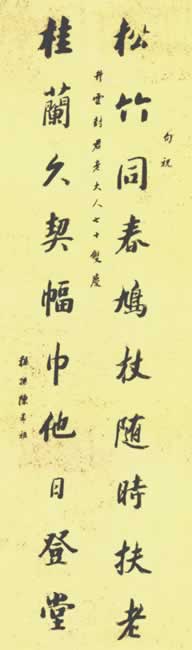 松竹同春鳩杖随時扶老
祝
雲封君老大人七十雙慶
桂蘭久契幅巾他日登堂